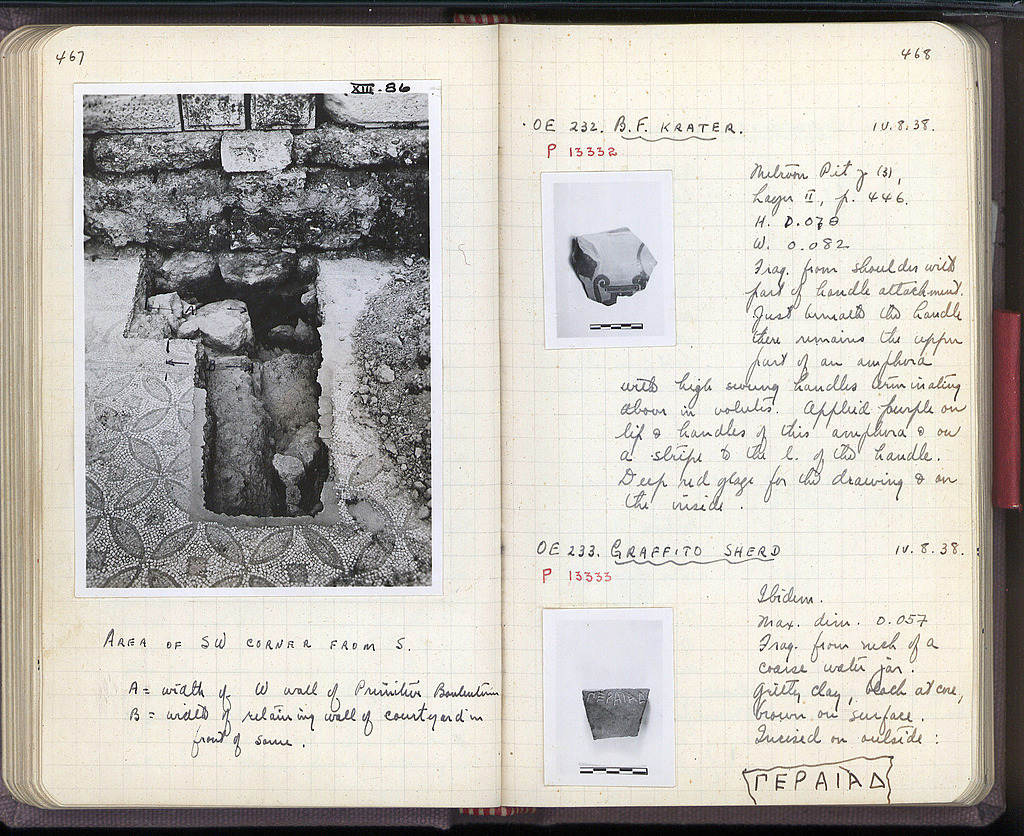 467
XIII-86
AREA OF SW CORNER FROM S.
A = width of W wall of Primitive Bouleuterion
B = width of retaining wall of courtyard in
front of same.
468
OE 232. B.F. KRATER. IV.8.38.
P 13332
Metroon Pit γ (3),
Layer II, p. 446.
H. 0.078
W. 0.082
Frag. from shoulder with
part of handle attachment.
Just beneath the handle
there remains the upper
part of an amphora
with high swung handles terminating
above in volutes. Applied purple on
lip & handles of this amphora & on
a stripe to the l. of the handle.
Deep red glaze for the drawing & on
the inside.
OE 233. GRAFFITO SHERD IV.8.38.
P 13333
Ibidem.
Max. dim. 0.057
Frag. from neck of a
coarse water jar.
Gritty clay, black at core,
brown on surface.
Incised on outside:
ΓΕΡΑΙΑΔ